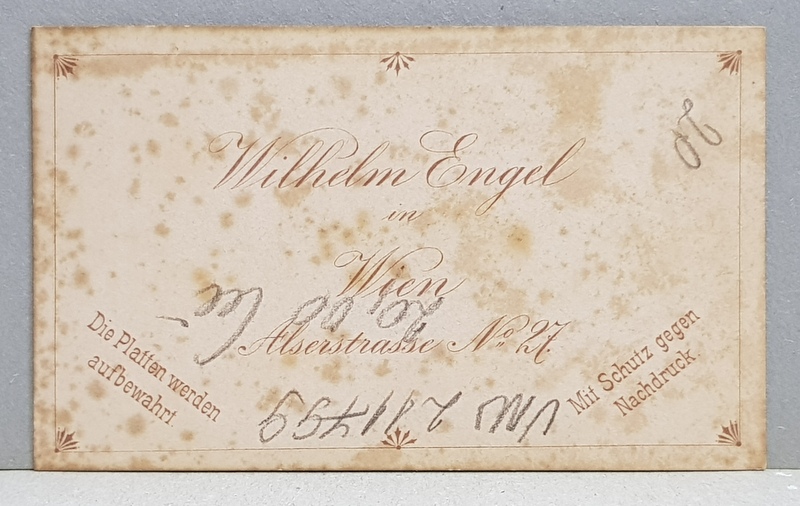 Wilhelm Engel
in
Wien
Alserstrasse No. 27.
Die Platten werden
aufbewahrt.
Mit Schutz gegen
Nachdruck.
20